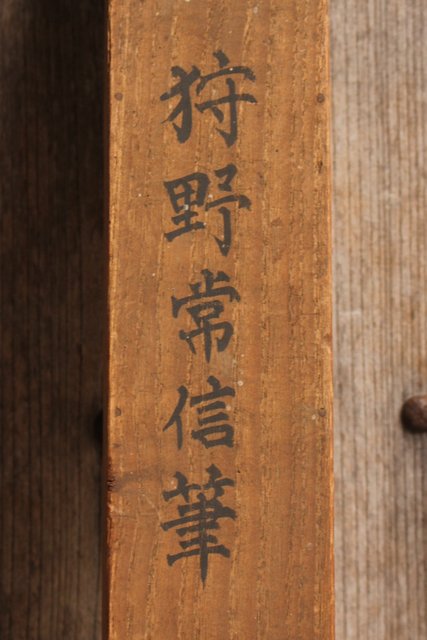 狩野常信筆